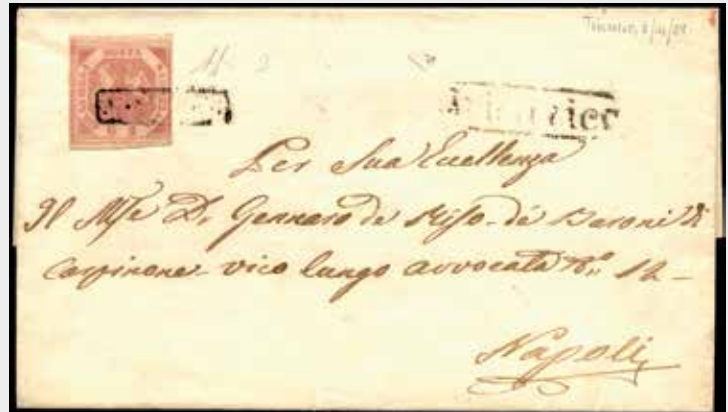 POSTA
Per Sua Eccellenza
Il Mse D. Gennaro de Riso de Baroni di
Carpinone vico lungo avvocata No. 12 -
Napoli